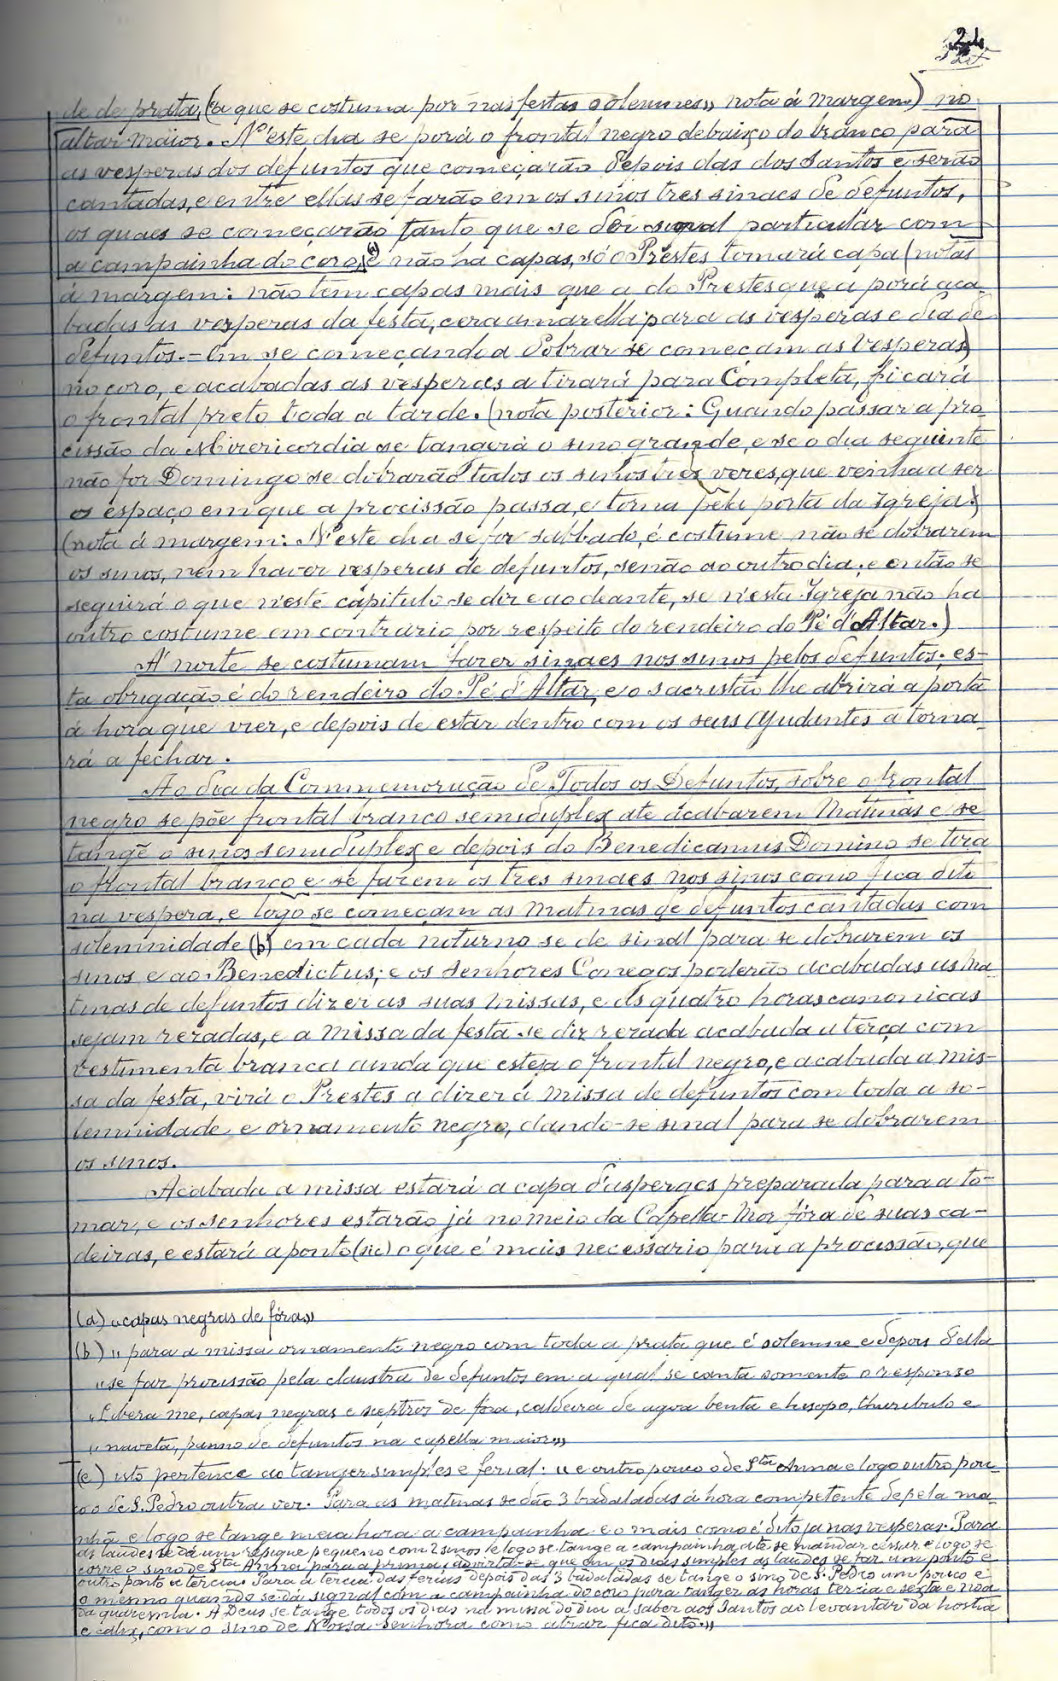 24
de de prata, («a que se costuma por nas festas solemnes» nota á margem) no
altar maior. N'este dia se porá o frontal negro debaixo do branco para
as vesperas dos defuntos que começarão depois das dos Santos e serão
cantadas, e entre ellas se farão em os sinos tres sinaes de defuntos,
os quaes se começarão tanto que se dér signal particular com
a campainha do coro, (a) e não há capas, só o Prestes tomará capa (notas
á margem: não têm capas mais que a do Prestes que a porá aca-
badas as vesperas da festa, cera amarella para as vesperas e dia de
defuntos. – Em se começando a dobrar se começam as Vesperas)
no coro, e acabadas as vesperas a tirará para Completa, ficará
o frontal preto toda a tarde. (nota posterior: Quando passar a pro-
cissão da Misericordia se tangerá o sino grande, e se o dia seguinte
não for Domingo se dobrarão todos os sinos tres vezes, que venha a ser
o espaço em que a procissão passa, e torna pela porta da Igreja)
(nota á margem: N'este dia se for sabbado, é costume não se dobrarem
os sinos, nem haver vesperas de defuntos, senão ao outro dia; e então se
seguirá o que n'este capitulo se diz e ao deante, se n'esta Igreja não ha
outro costume em contrario por respeito do rendeiro do Pé d'Altar.)
Á noite se costumam fazer sinaes nos sinos pelos defuntos; es-
ta obrigação é do rendeiro do Pé d'Altar, e o sacristão lhe abrirá a porta
á hora que vier, e depois de estar dentro com os seus ajudantes a torna-
rá a fechar.
Ao dia da Commemoração de Todos os Defuntos, sobre o frontal
negro se põe frontal branco semiduplex até acabarem Matinas e se
tange o sino semiduplex e depois do Benedicamus Domino se tira
o frontal branco e se fazem os tres sinaes nos sinos como fica dito
na vespera, e logo se começam as Matinas de defuntos cantadas com
solemnidade (b) em cada noturno se de sinal para se dobrarem os
sinos e ao Benedictus; e os senhores Conegos poderão acabadas as Ma-
tinas de defuntos dizer as suas missas, e as quatro horas canonicas
sejam rezadas, e a missa da festa se diz rezada acabada a têrça com
vestimenta branca ainda que esteja o frontal negro, e acabada a mis-
sa da festa, virá o Prestes a dizer á missa de defuntos com toda a so-
lemnidade e ornamento negro, dando-se sinal para se dobrarem
os sinos.
Acabada a missa estará a capa d'asperges preparada para a to-
mar, e os senhores estarão já no meio da Capella-Mor fóra de suas ca-
deiras, e estará a ponto (sic) o que é mais necessario para a procissão, que
(a) «capas negras de fóra»
(b) «para a missa ornamento negro com toda a prata que é solemne e depois d'ella
«se faz procissão pela claustra de defuntos em a qual se canta somente o responso
«Libera me, capas negras e sceptros de fóra, caldeira de agoa benta e hisopo, thuribulo e
«naveta, panno de defuntos na capella maior»
(c) isto pertence ao tanger simples e ferial: «e outro pouco o de Sta Anna e logo outro pou-
co o de S. Pedro outra vez. Para as matinas se dão 3 badaladas á hora competente de pela ma-
nhã e logo se tange meia hora a campainha e o mais como é dito ja nas vesperas. Para
as laudes se dá um repique pequeno com 2 sinos e logo se tange a campainha até se mandar cessar e logo se
corre o sino de Sta Anna para a prima; advirta-se que em os dias simples ás laudes se faz um ponto e
outro ponto a tercia. Para a tercia das ferias depois das 3 badaladas se tange o sino de S. Pedro um pouco e
o mesmo quando se dá signal com a campainha do coro para tanger as horas tercia e sexta e noa
da quaresma. A Deus se tange todos os dias na missa do dia a saber aos Santos ao levantar da hostia
e calix, com o sino de Nossa Senhora como atraz fica dito.»